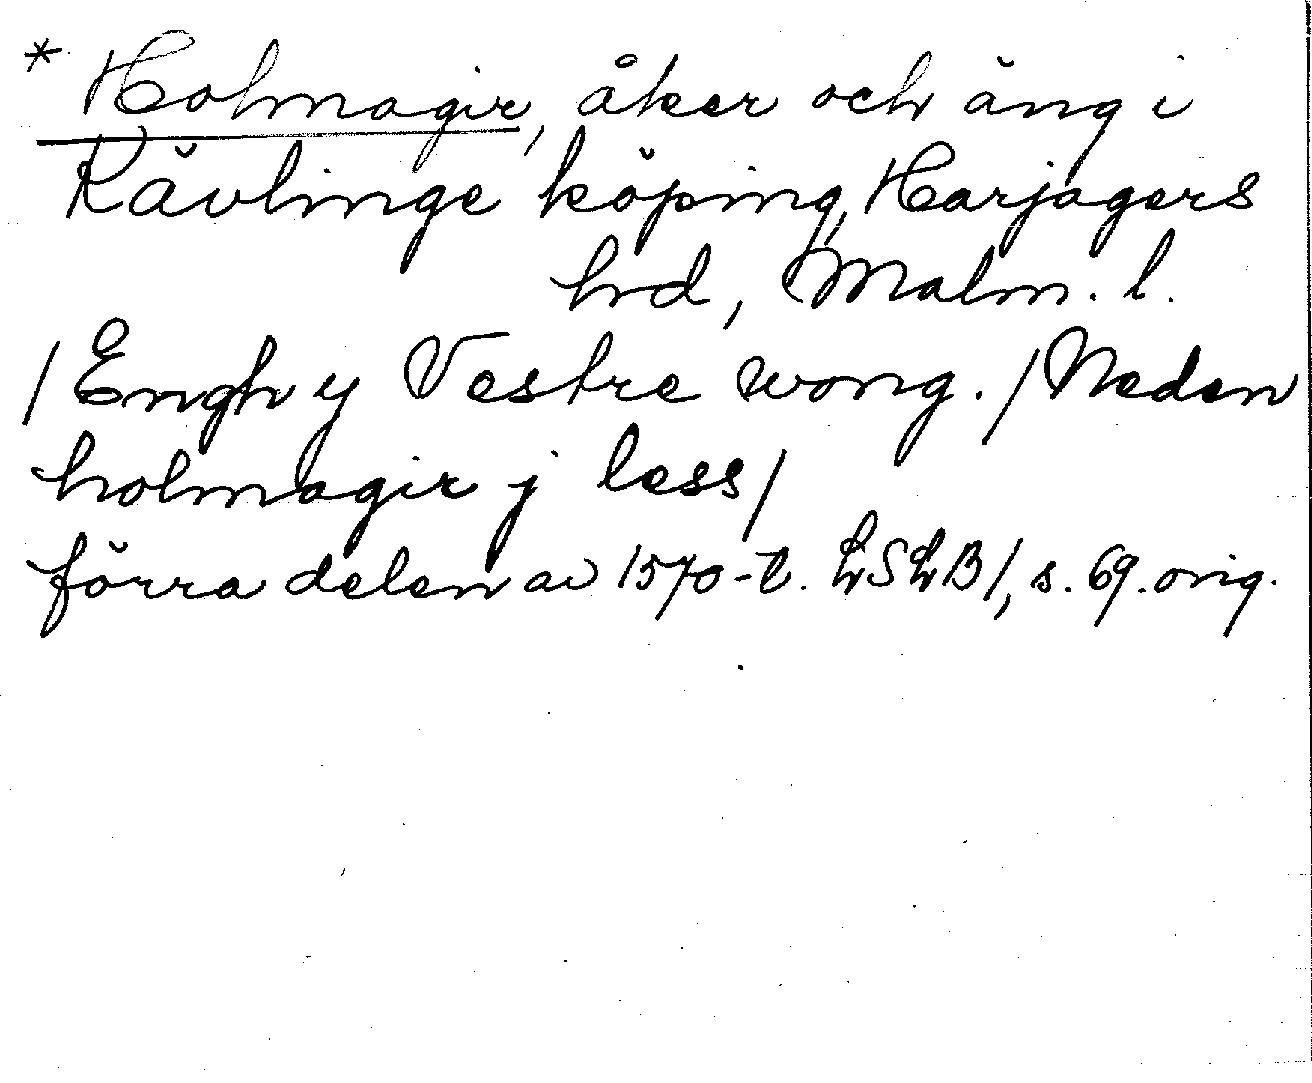 * Holmagir, åker och äng i
Kävlinge köping, Harjagers
hrd, Malm. l.
/Engh y Vestre wong./Neden
holmagir j less/
förra delen av 1570-t. LSLB1, s. 69. orig.